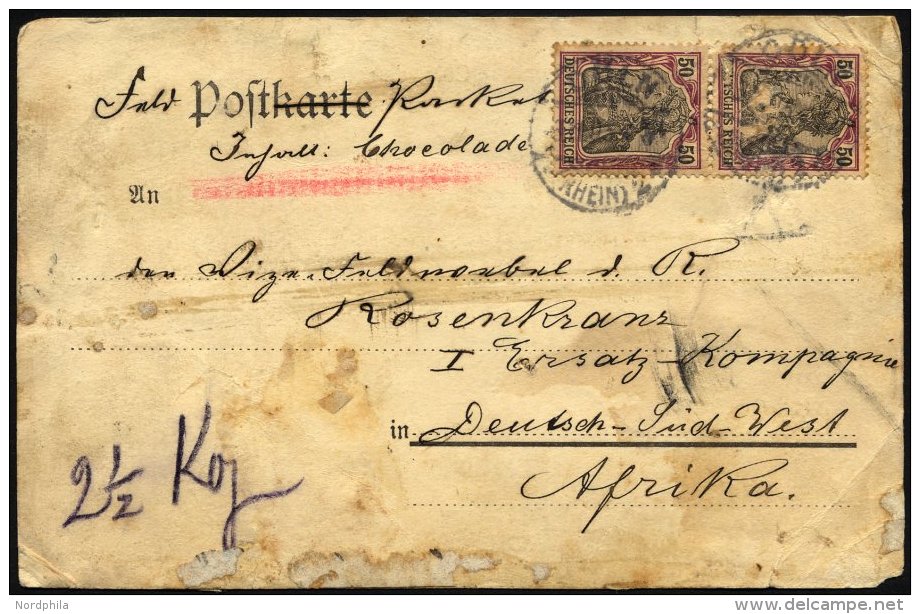 Feld Postkarte Packet
Inhalt: Chocolade
An
den Vize-Feldwebel d. R.
Rosenkranz
I Ersatz-Kompagnie
in Deutsch-Süd-West
Afrika.
2 1/2 Kg
50
DEUTSCHES REICH
50
50
DEUTSCHES REICH
50
(RHEIN)
Nordphila
delcampe.net